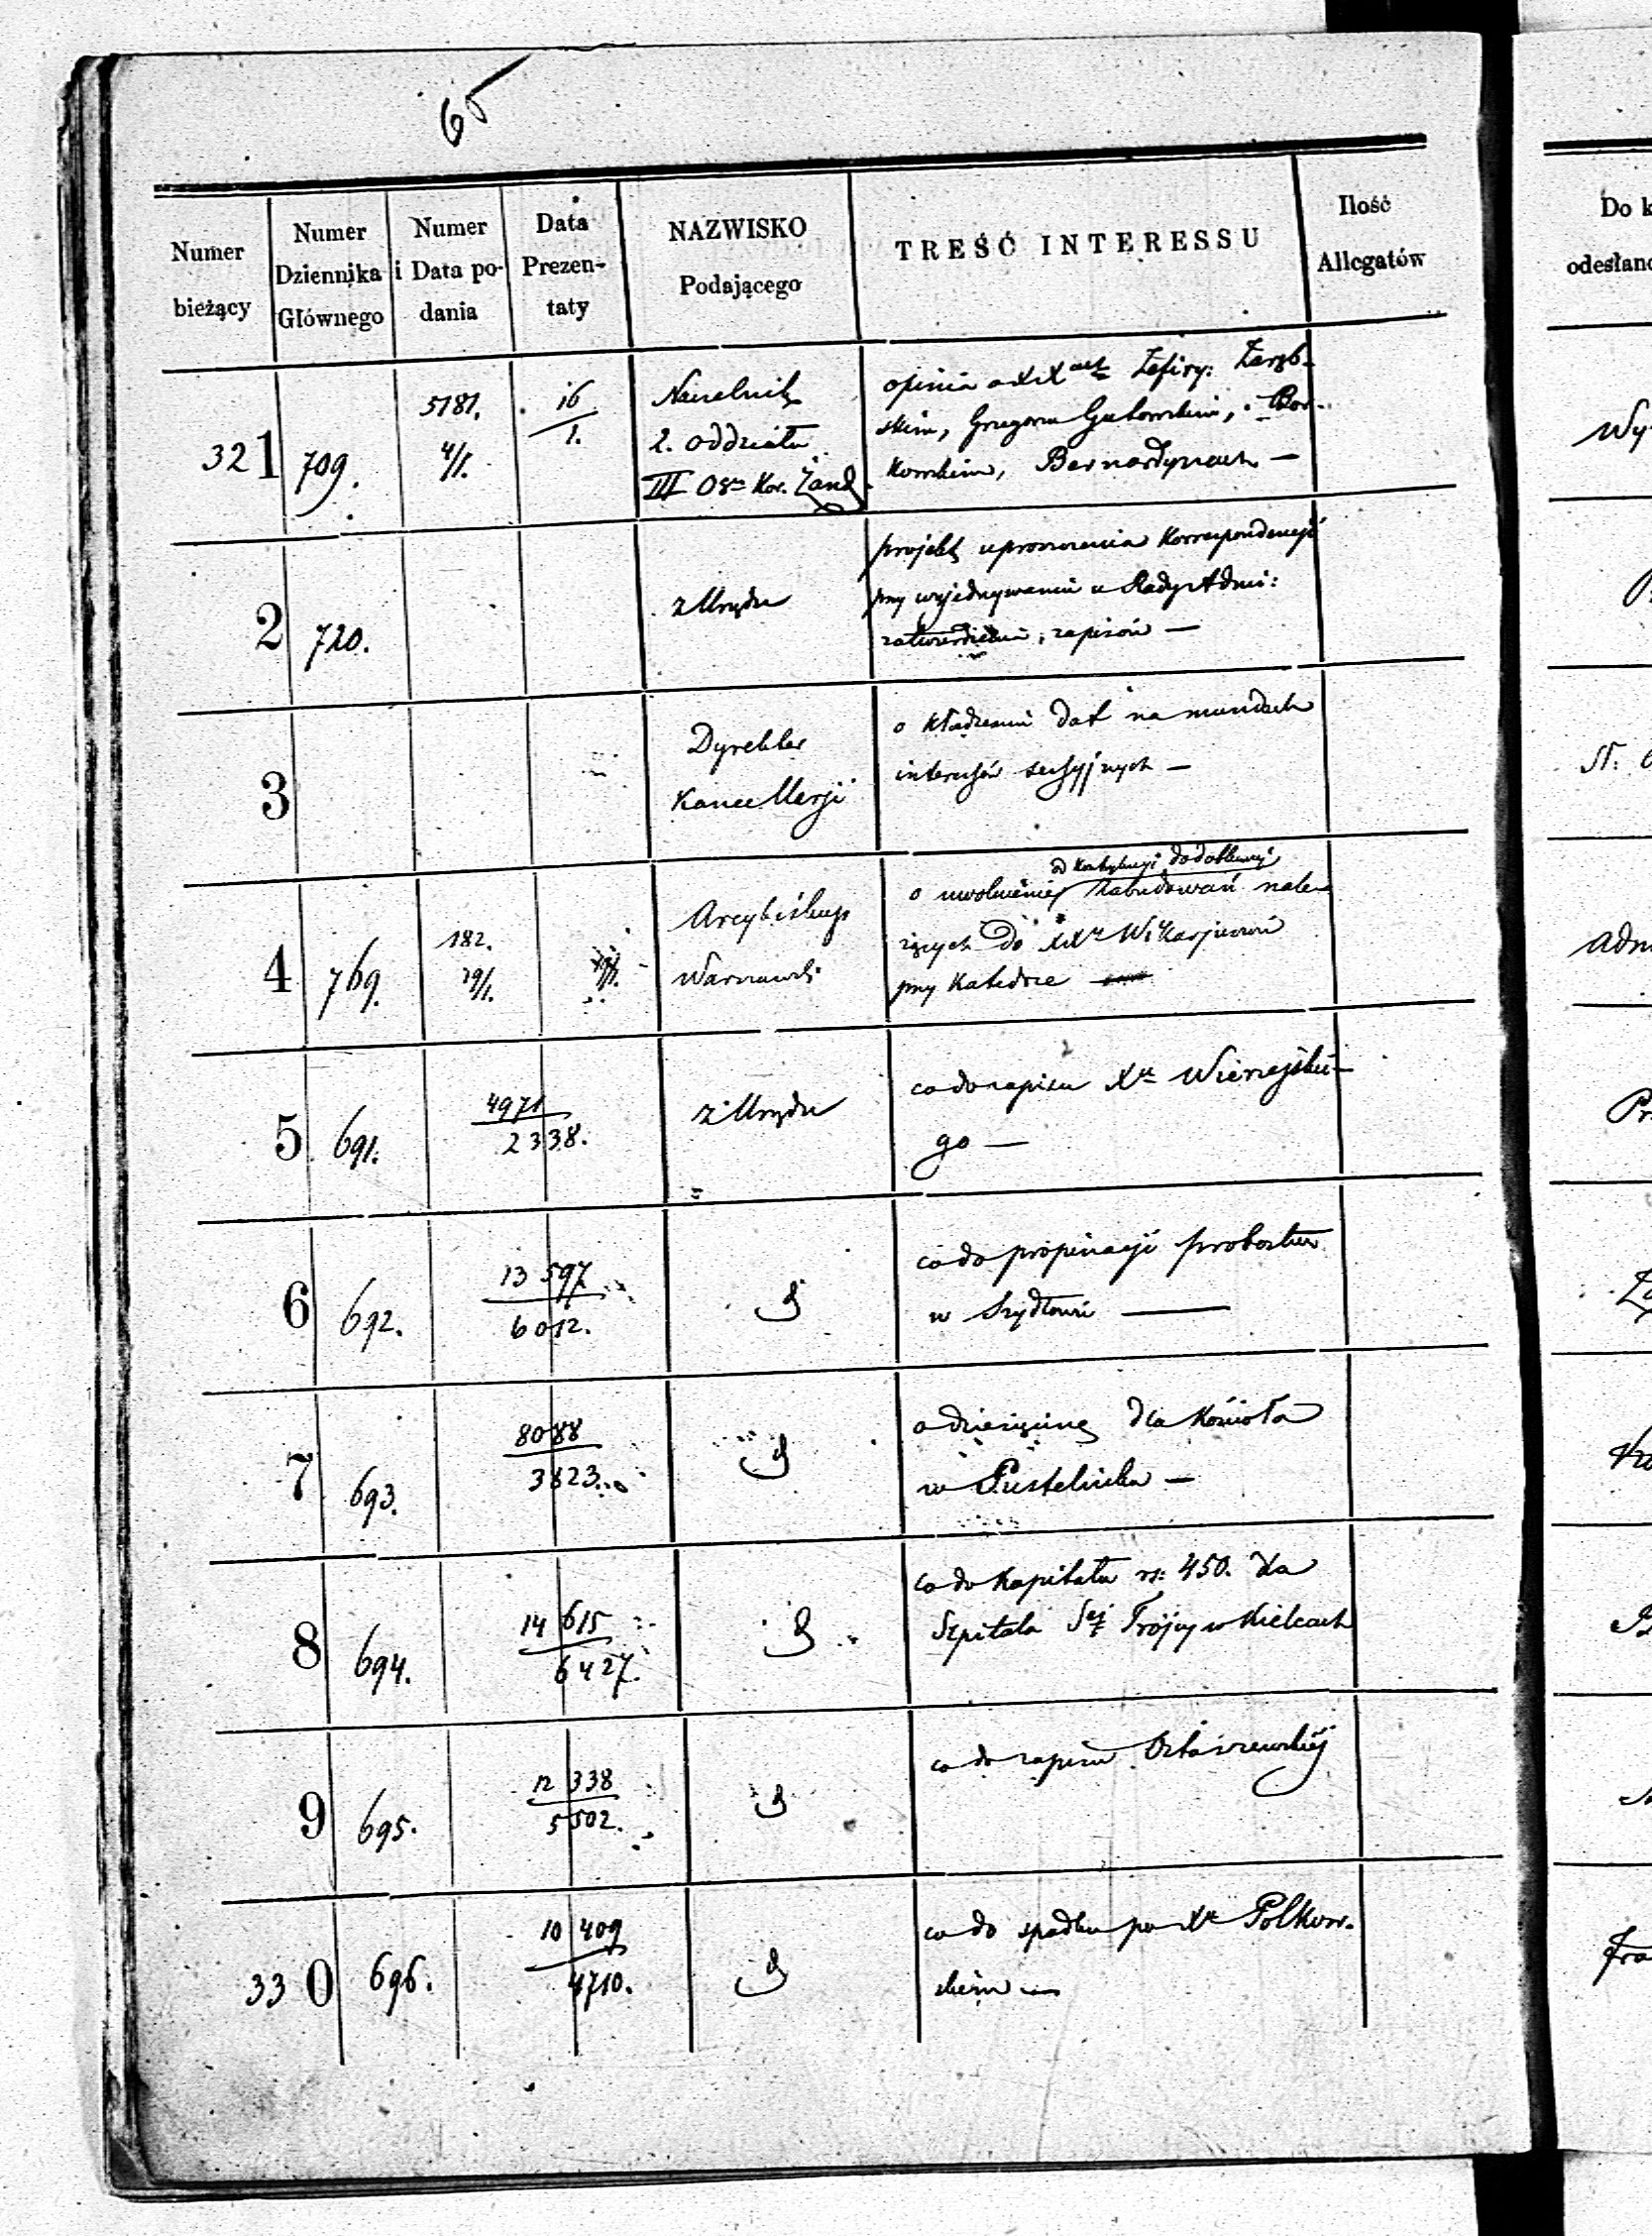 65
Numer
bieżący
Numer
Dziennika
Głównego
Numer
i Data po-
dania
Data
Prezen-
taty
NAZWISKO
Podającego
TREŚĆ INTERESSU
Ilość
Allegatów
321
709.
5181.
4/1.
16
1.
Naczelnik
2. oddziału
III Ogo Kor. Żand.
opinia o XX
skim, Grzegorzu Gutowskim, Bor-
kowskim, Bernardynach —
2
720.
z Urzędu
projekt uproszczenia korrespondencji
przy wyjednywaniu u Rady Admi:
zatwierdzenia zapisów —
3
Dyrektor
Kancellarji
o kładzeniu dat na mundach
interesów sessyjnych —
4
769.
182.
19/1.
Arcybiskup
Warszawski
o uwolnienie zabudowań nale-
żących do XX Wikarjuszów
przy Katedrze
5
691.
4971
2338.
z Urzędu
co do zapisu Xa Wierzejskie-
go —
6
692.
13 597
6012.
co do propinacji probostwa
w Szydłowie —
7
693.
8088
3823.
o dziesięcinę dla Kościoła
w Pustelniku —
8
694.
14 615
6427.
co do Kapitału rs: 450. dla
Szpitala Sej Trójcy w Kielcach
9
695.
12 338
5502.
co do zapisu
330
696.
10 409
4710.
co do spadku po Xu Polkow-
skim —
Do k
odesłano
Wy
St:
Adm
Pr
Fra